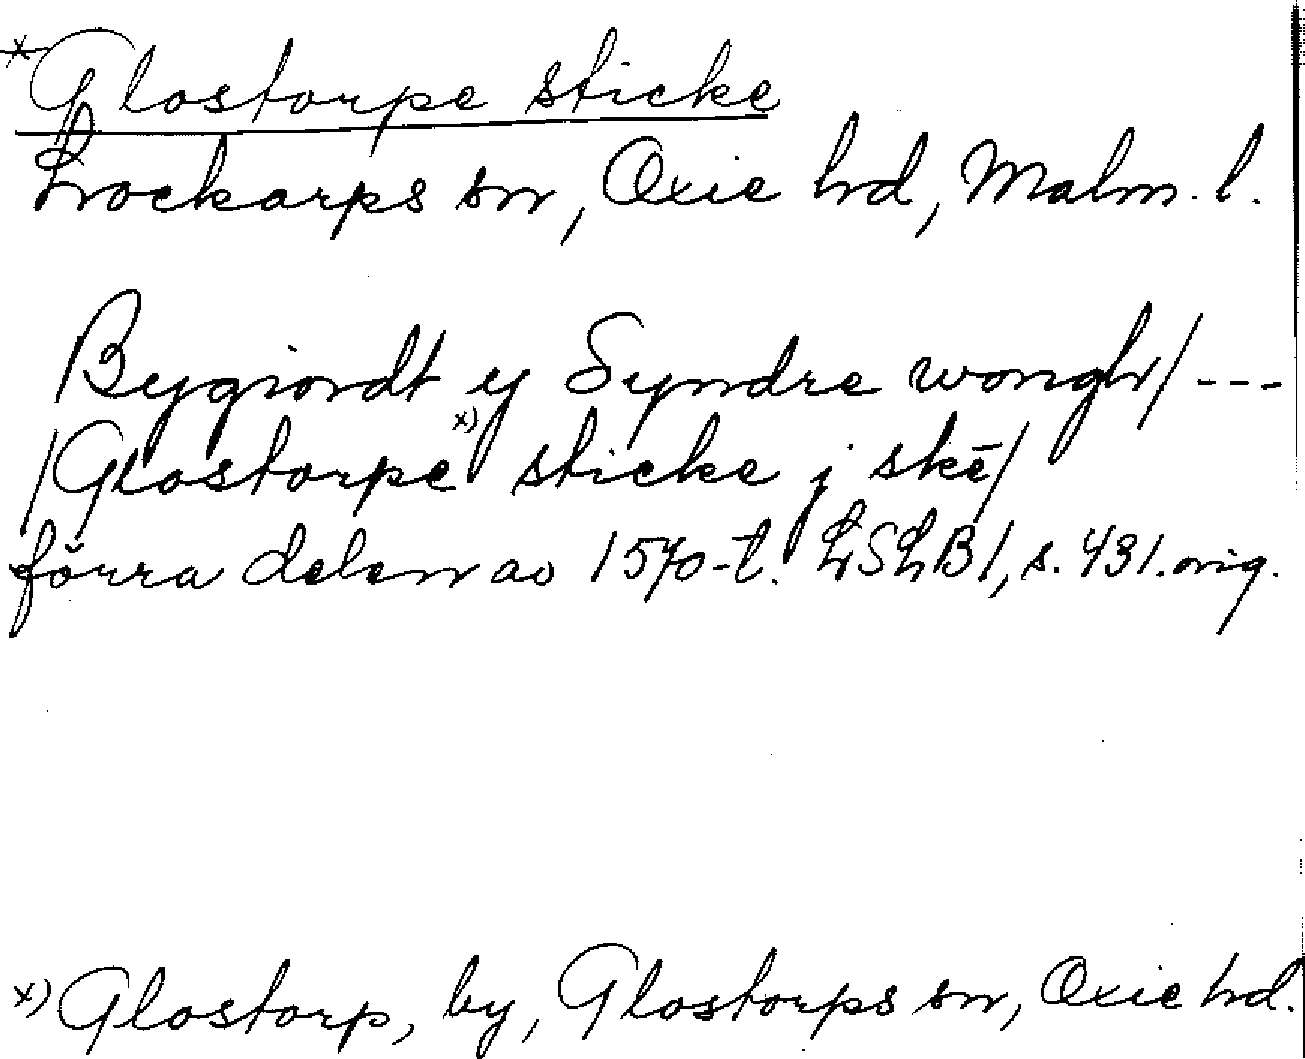 *Glostorpe sticke
Lockarps sn, Oxie hd, Malm. l.
Bygiordt y Syndre wongh/---
/Glostorpe x) sticke j skē/
förra delen av 1570-t. LSLB1, s. 431. orig.
x) Glostorp, by, Glostorps sn, Oxie hd.